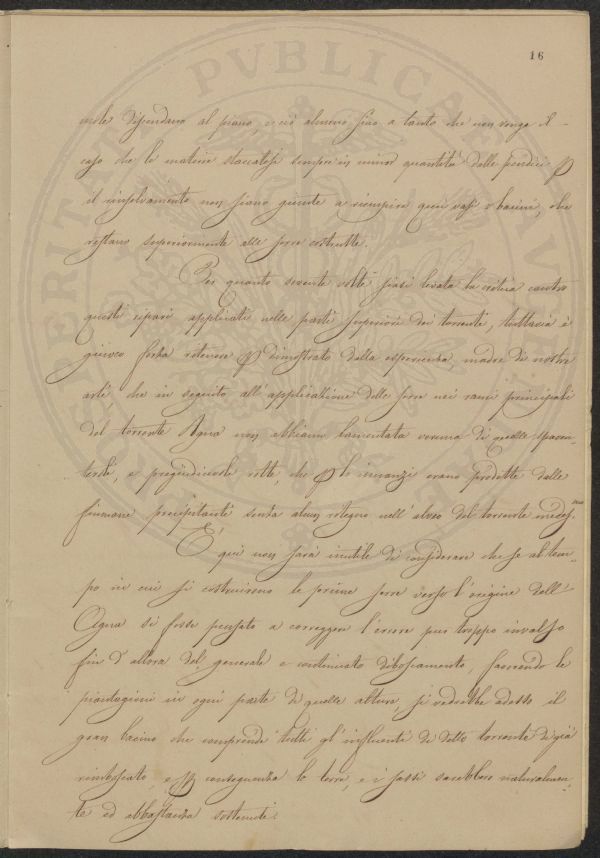 16
mole discendano al piano, e ciò almeno fino a tanto che non venga il
caso che le materie staccatesi sempre in minor quantità dalle pendici p
il rinselvamento non siano giunte a riempire quei vasi o bacini, che
restano superiormente alle serre costrutte.
Per quanto sovente volte siasi levata la critica contro
questi ripari applicati nelle parti superiori dei torrenti, tuttavia è
giuoco forza ritenere p dimostrato dalla esperienza, madre di nostre
arti che in seguito all'applicazione delle serre nei rami principali
del torrente Agna non abbiamo lamentata veruna di quelle spaven-
tevoli, e pregiudicevoli rotte, che p lo innanzi erano prodotte dalle
fiumane precipitanti senza alcun ritegno nell'alveo del torrente medes.mo
E qui non sarà inutile di considerare che se al tem-
po in cui si costruirono le prime serre verso l'origine dell'
Agna si fosse pensato a correggere l'errore pur troppo invalso
fin d'allora del generale e continuato disboscamento, facendo le
piantagioni in ogni parte di quelle alture, si vedrebbe adesso il
gran bacino che comprende tutti gl'influenti di detto torrente di già
rimboscato, e p conseguenza le terre, e i sassi sarebbero naturalmen-
te ed abbastanza sostenuti.
PVBLICA
VERITAT